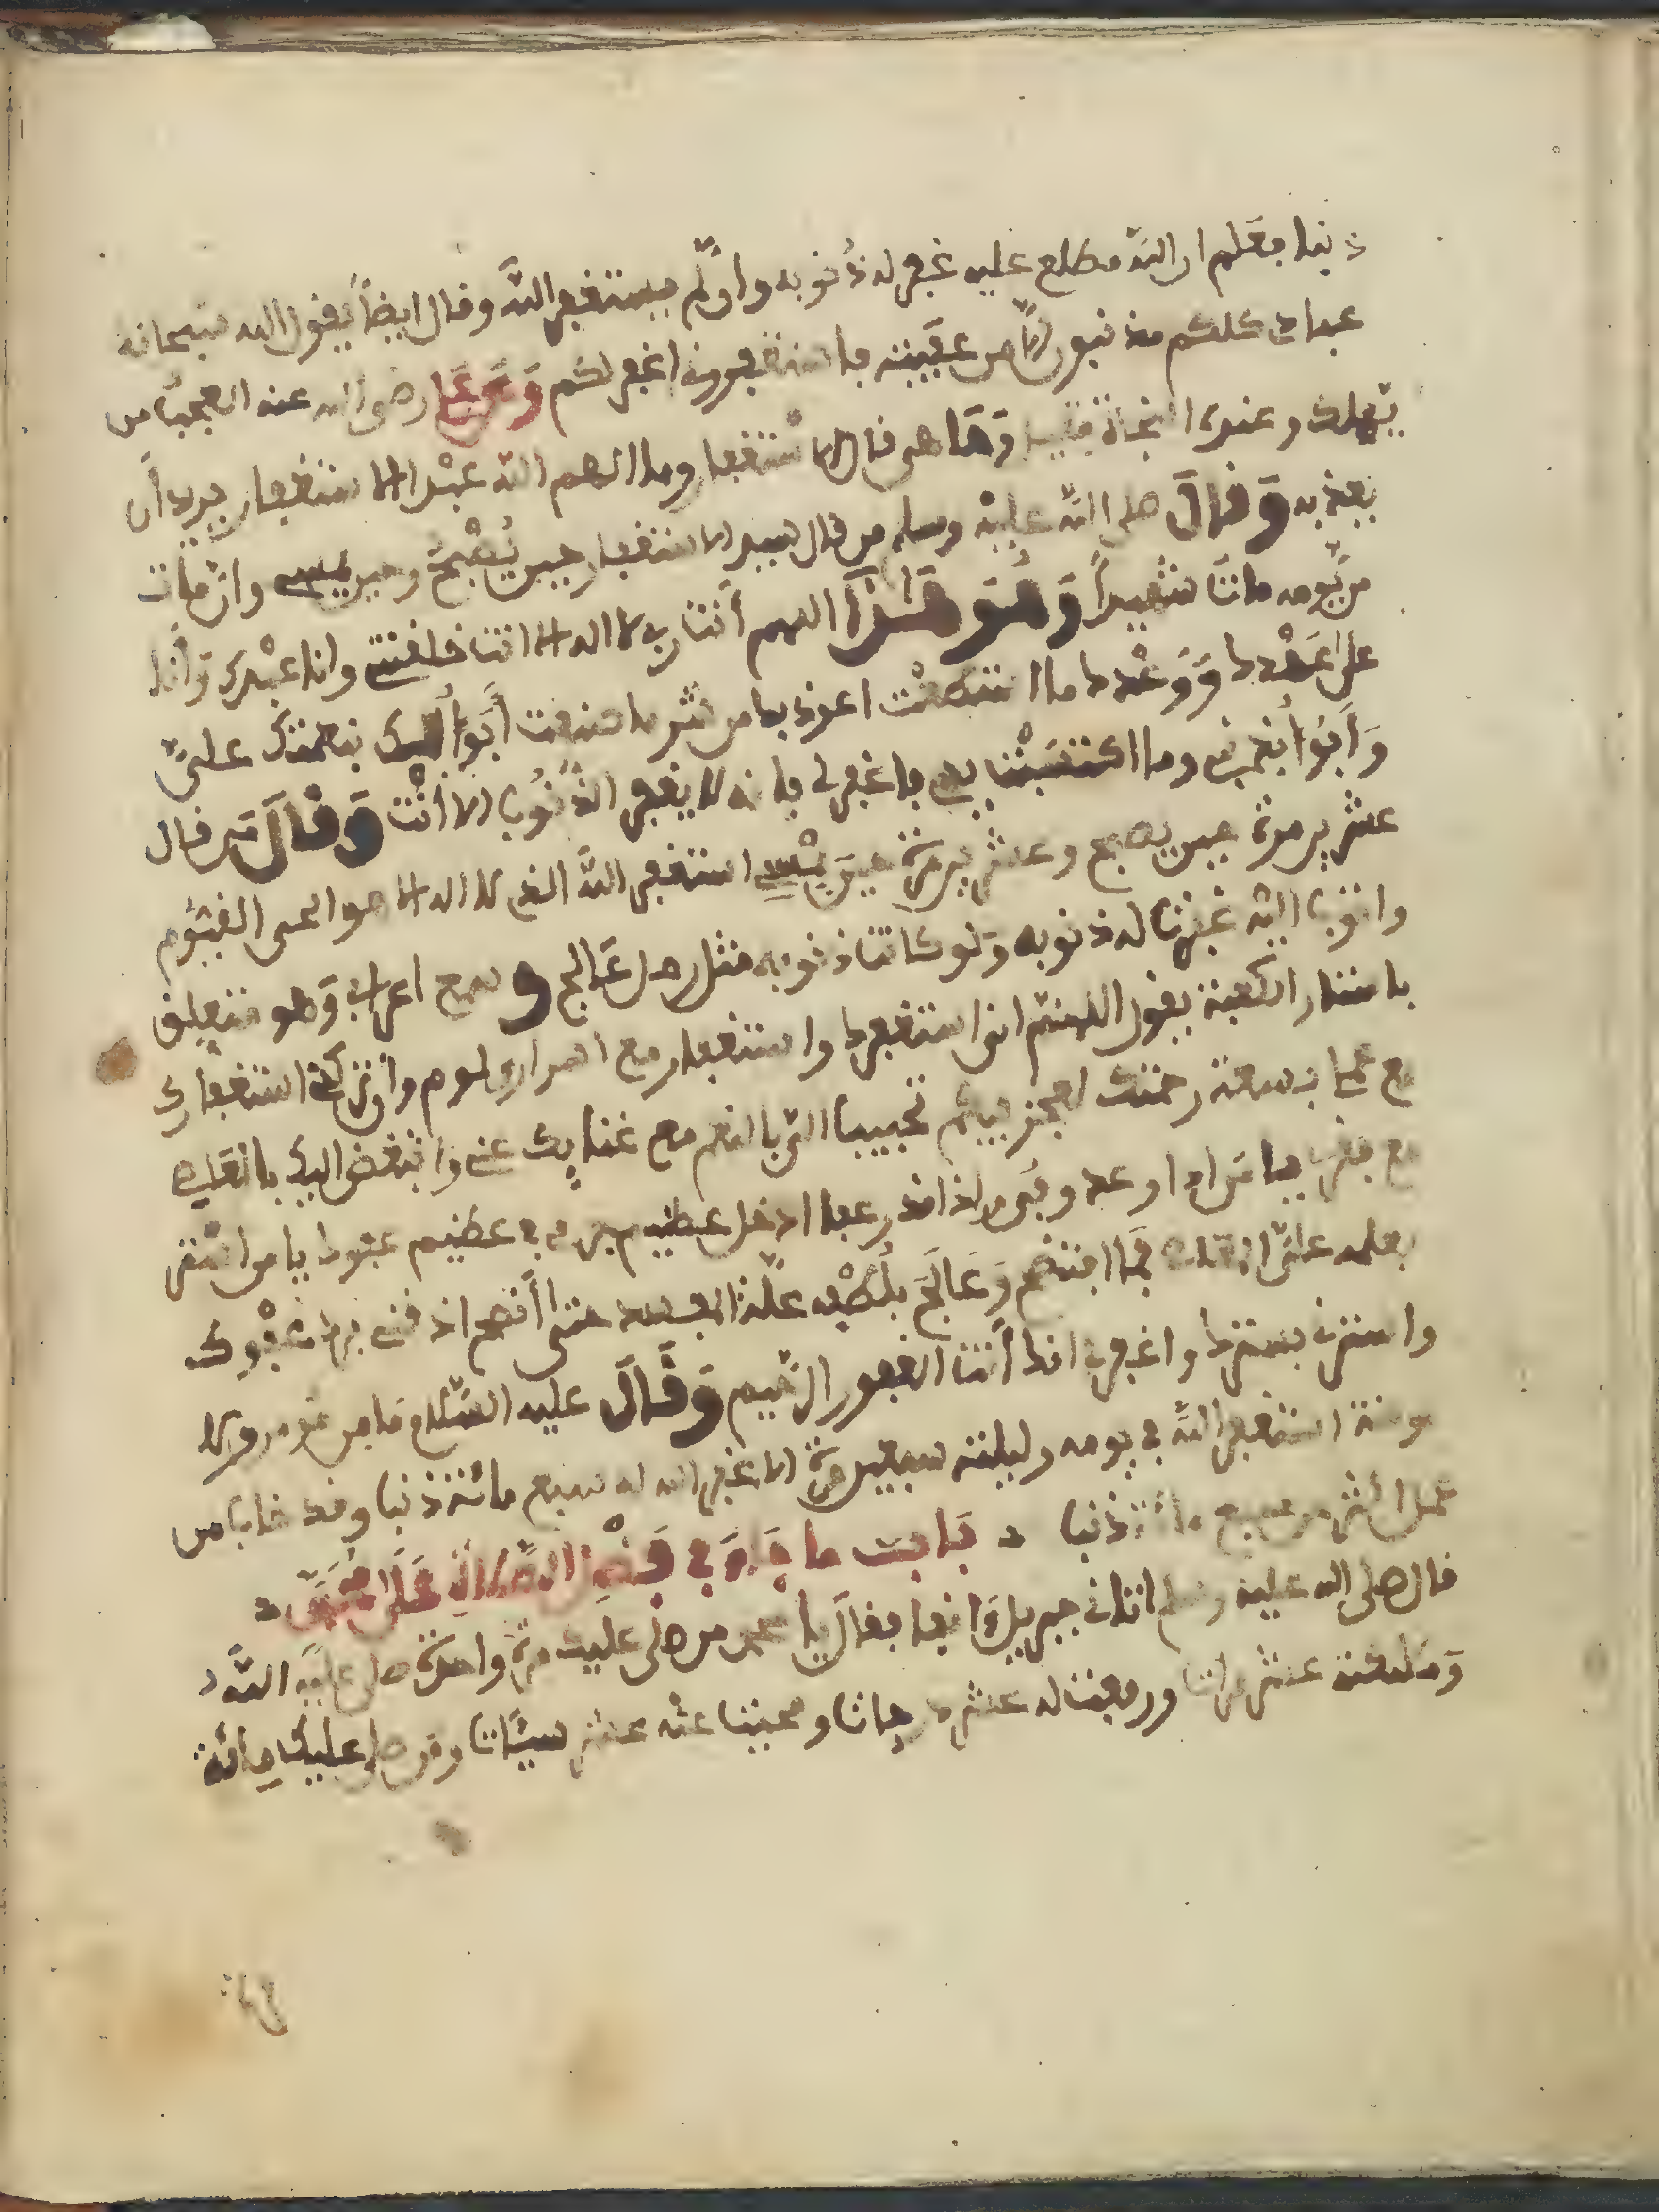 ذنبا فعلم ان الله مطلع عليه غفر له ذنوبه وان لم يستغفر الله وقال ايضا يقول الله سبحانه
عبادي كلكم مذنبون الا من عفيته فاستغفروني اغفر لكم وعن علي رضي الله عنه العجب ممن
يهلك وعنده النجاة قيل وما هي قال الاستغفار وما الهم الله عبدا الاستغفار يريد ان
يعذبه وقال صلى الله عليه وسلم من قال سيد الاستغفار حين يصبح وحين يمسي وان مات
من يومه مات شهيدا وهو هذا اللهم أنت ربي لا اله الا انت خلقتني وانا عبدك وأنا
على عهدك ووعدك ما استطعت اعوذ بك من شر ما صنعت أبوأ اليك بنعمتك علي
وأبوأ بذنبي وما اكتسبت به فاغفر لي فانه لا يغفر الذنوب الا أنت وقال من قال
عشرين مرة حين يصبح وعشرين مرة حين يمسي استغفر الله الذي لا اله الا هو الحي القيوم
واتوب اليه غفرت له ذنوبه ولو كانت ذنوبه مثل رمل عالج وسمع اعرابي وهو متعلق
باستار الكعبة يقول اللهم اني استغفرك واستغفار مع اصراري لوم وان تركي استغفارك
مع علمي بسعة رحمتك لعجز فيكم تحبب الي بالنعم مع غنايك عني واتبغض اليك بالمعاصي
مع فقري يا من اذا وعد وفى واذا قدر عفا ادخل عظيم جرمي في عظيم عفوك يا من
واسترني بسترك واغفر لي انك أنت الغفور الرحيم وقال عليه السلام ما من مومن ولا
مومنة استغفر الله في يومه وليلته سبعين مرة الا غفر الله له سبع مائة ذنبا وقد خاب من
عمل أكثر من سبع مائة ذنبا باب ما جاء في فضل الصلاة على محمد
قال صلى الله عليه وسلم اتاني جبريل وانفا فقال يا محمد من صلى عليك مرة واحدة صلى عليه الله
وملئكته عشر مرات ورفعت له عشر درجات ومحيت عنه عشر سيئات ومن صلى عليك مائة